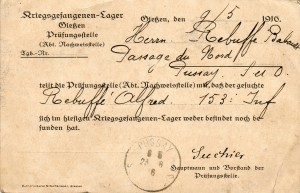 Kriegsgefangenen-Lager
Gießen
Prüfungsstelle
(Abt. Nachweisstelle)
Tgb.-Nr.
Gießen, den 9/5 1916.
Herrn Rebuffé
Passage du Nord
Pussay, S et O.
teilt die Prüfungsstelle (Abt. Nachweisstelle) mit, daß der gesuchte
Rebuffé Alfred. 153: Inf
sich im hiesigen Kriegsgefangenen-Lager weder befindet noch be-
funden hat.
Hauptmann und Vorstand der
Prüfungsstelle.